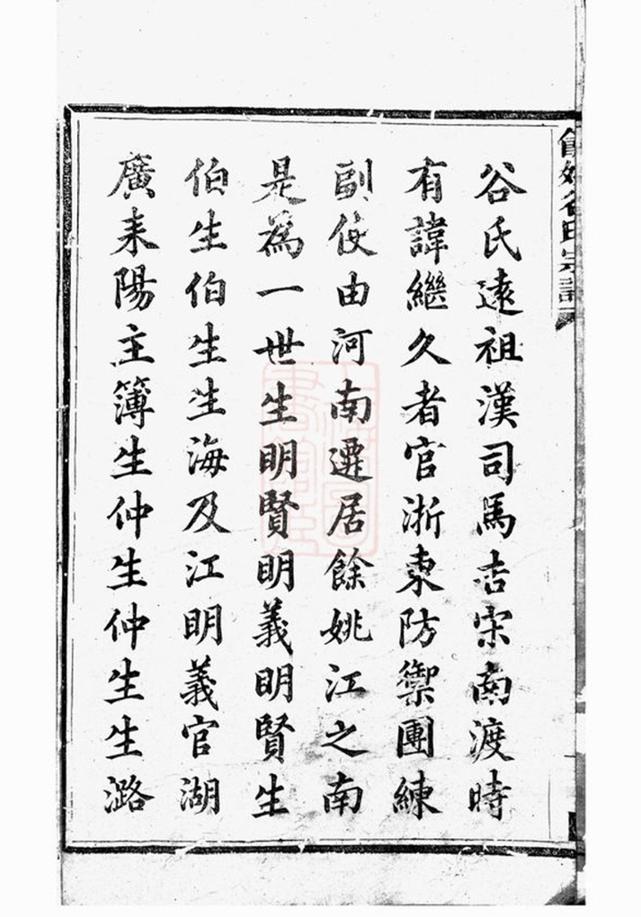 會姚谷氏宗譜
谷氏遠祖漢司馬吉宋南渡時
有諱繼久者官浙東防禦團練
副使由河南遷居餘姚江之南
是為一世生明賢明義明賢生
伯生伯生生海及江明義官湖
廣耒陽主簿生仲生仲生生潞